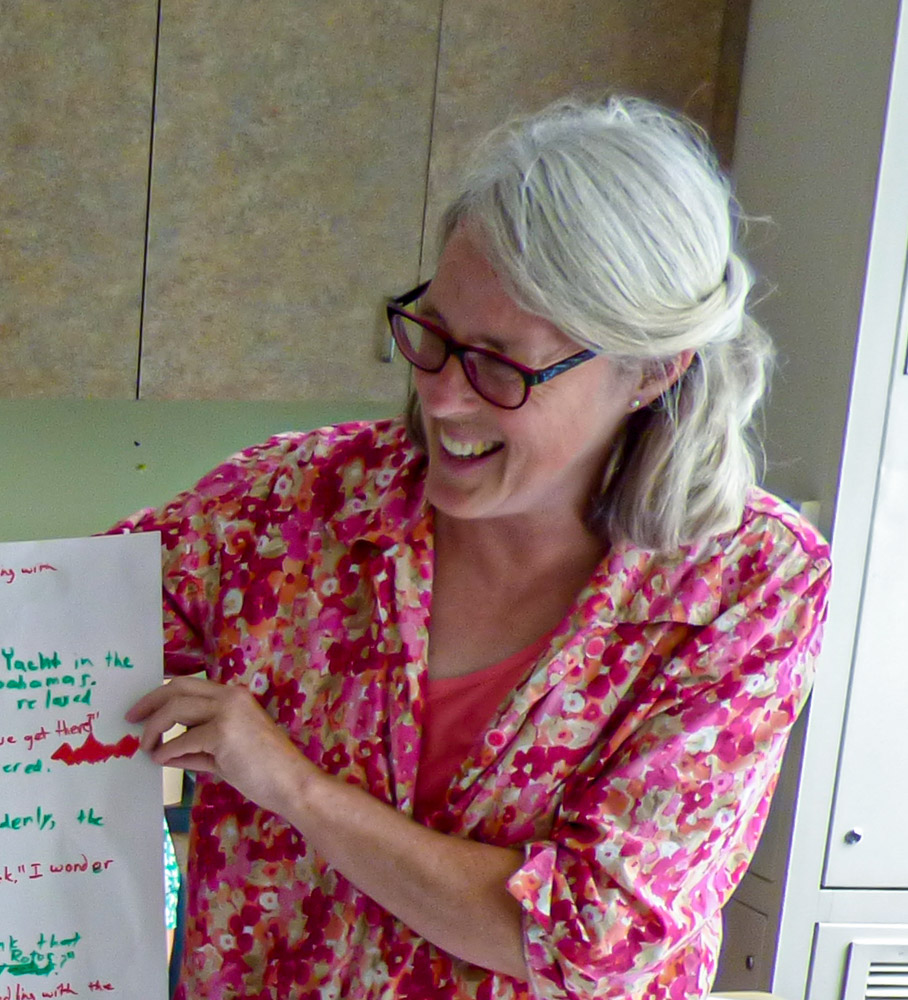 ing with
Yacht in the
bahamas.
relaxed
we get there?"
ered.
denly, the
k," I wonder
nk that
Rotor,"
dling with the